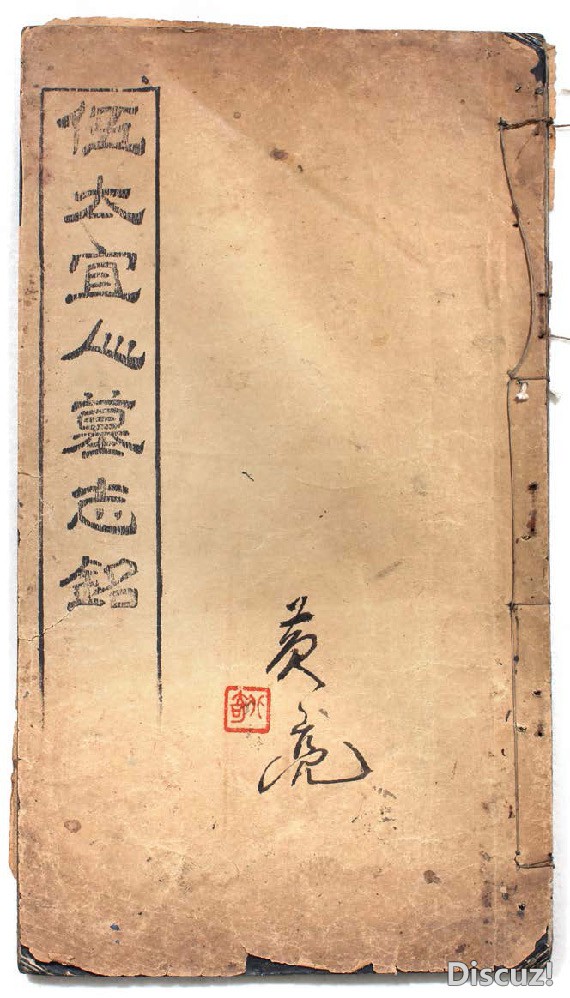 伍太宜人墓志銘
黄亮
Discuz!